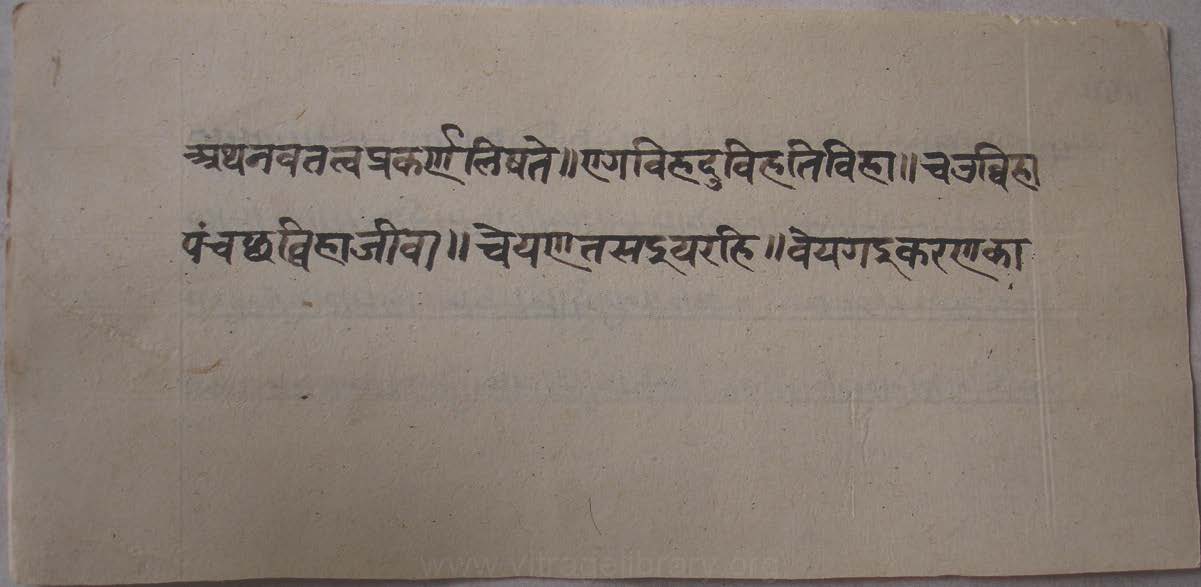 अथनवतत्वप्रकर्णलिषते॥एगविहदुविहतिविहा॥चउव्विहा
पंचछव्विहाजीवा॥चेयणतसइयरहि॥वेयगइकरणका
www.vitragelibrary.org